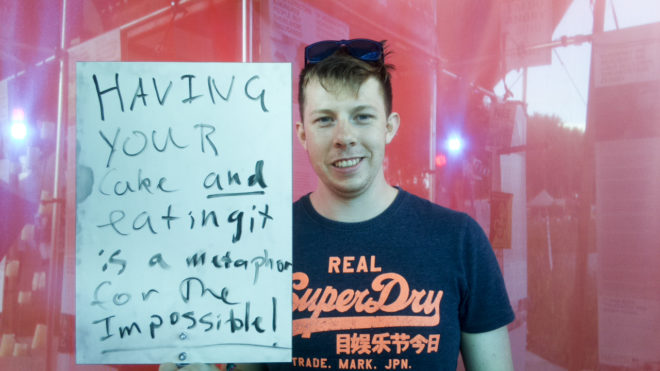 HAVING
YOUR
Cake and
eating it
is a metaphor
for The
Impossible!
REAL
SuperDry
目娱乐节今日
TRADE. MARK. JPN.